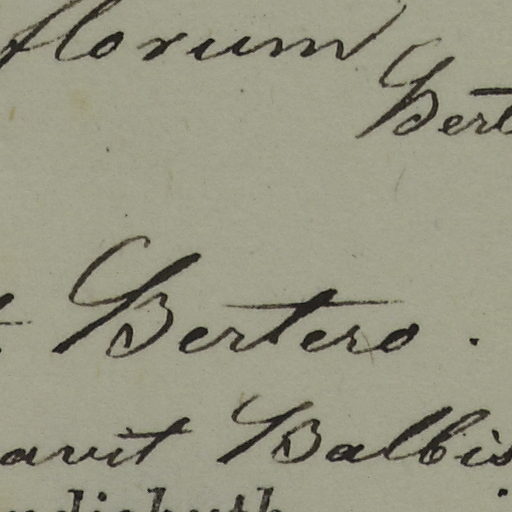 florum
Bert
Bertero.
avit Balbis.